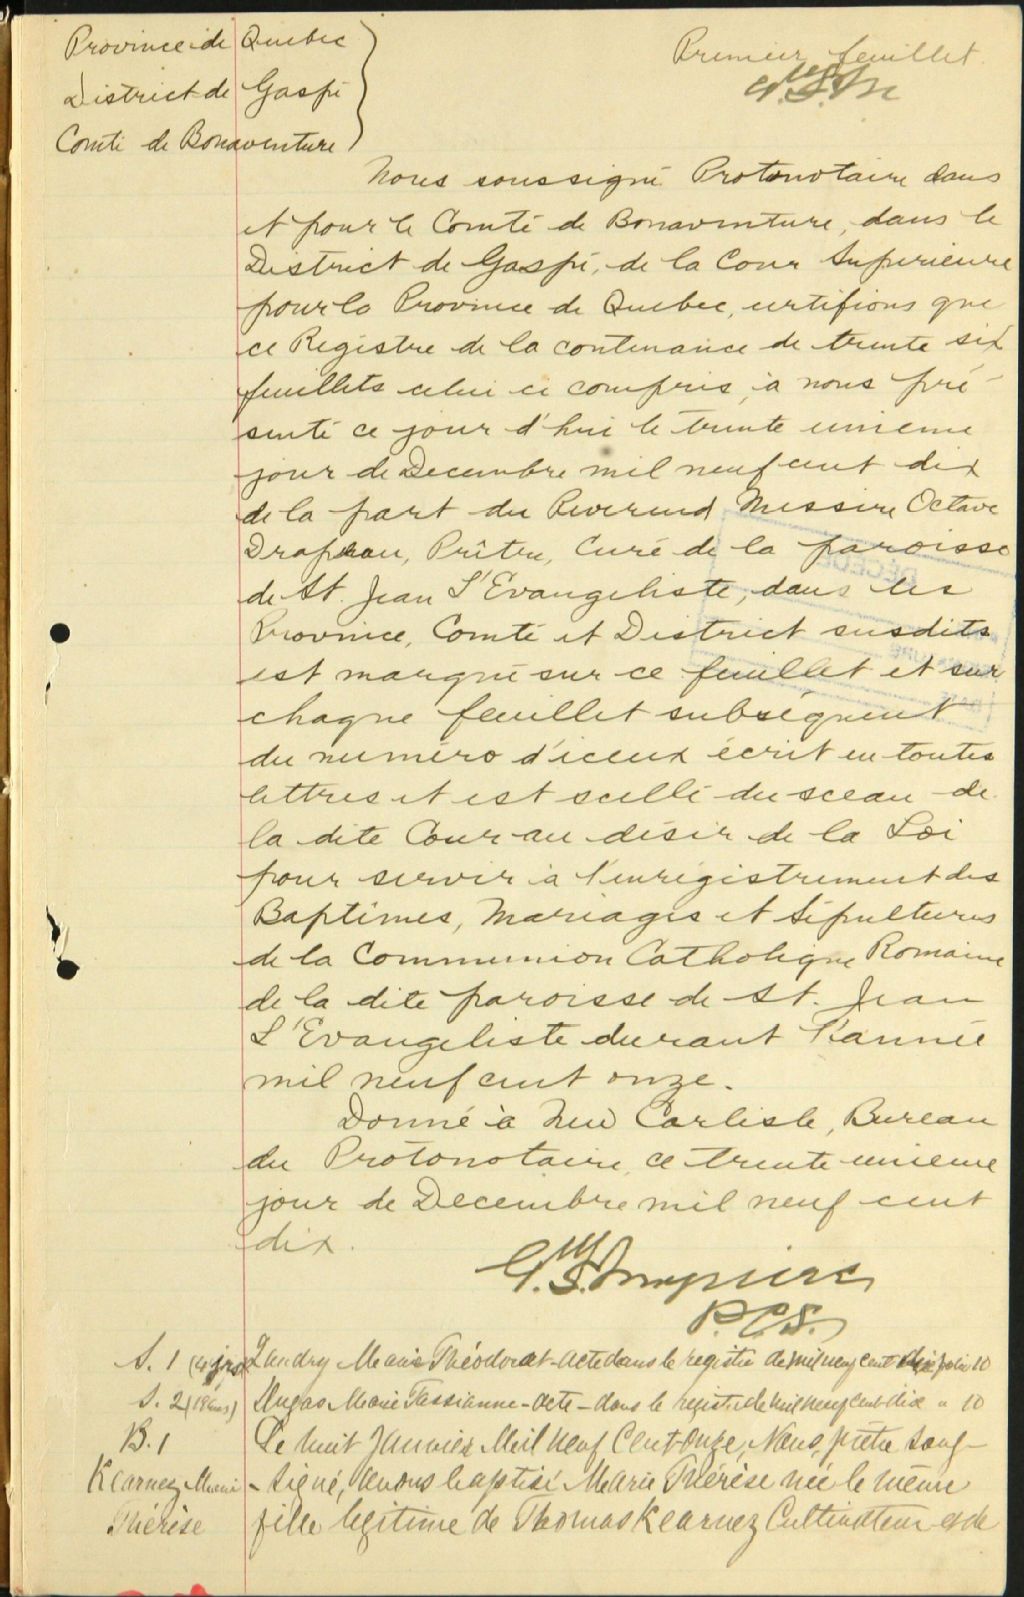 Province de Quebec
District de Gaspé
Comté de Bonaventure
Premier feuillet.
Nous soussigné Protonotaire dans
et pour le Comté de Bonaventure, dans le
District de Gaspé, de la Cour Superieure
pour la Province de Quebec, certifions que
ce Registre de la contenance de trente six
feuillets celui ci compris, à nous pré-
senté ce jour d'hui le trente unieme
jour de Decembre mil neuf cent dix
de la part du Reverend Messire Octave
Drapeau, Prêtre, Curé de la paroisse
de St. Jean L'Evangeliste, dans les
Province, Comté et District susdits
est marqué sur ce feuillet et sur
chaque feuillet subséquent
du numéro d'iceux écrit en toutes
lettres et est scellé du sceau de
la dite Cour au désir de la Loi
pour servir à l'enrégistrement des
Baptêmes, Mariages et Sépultures
de la Communion Catholique Romaine
de la dite paroisse de St. Jean
L'Evangeliste durant l'année
mil neuf cent onze.
Donné à New Carlisle, Bureau
du Protonotaire, ce trente unieme
jour de Decembre mil neuf cent
dix.
P.C.S.
S. 1 (4 jrs) Landry Marie Théodorat - Acte dans le registre de mil neuf cent dix folio 10
S. 2 (18 ans) Dugas Marie Tassianne - Acte - dans le registre de mil neuf cent dix " 10
B. 1
Kearney Marie
Thérèse
Le huit Janvier Mil neuf Cent onze, Nous, prêtre sous-
-signé, avons baptisé Marie Thérèse née le même
fille légitime de Thomas Kearney Cultivateur et de